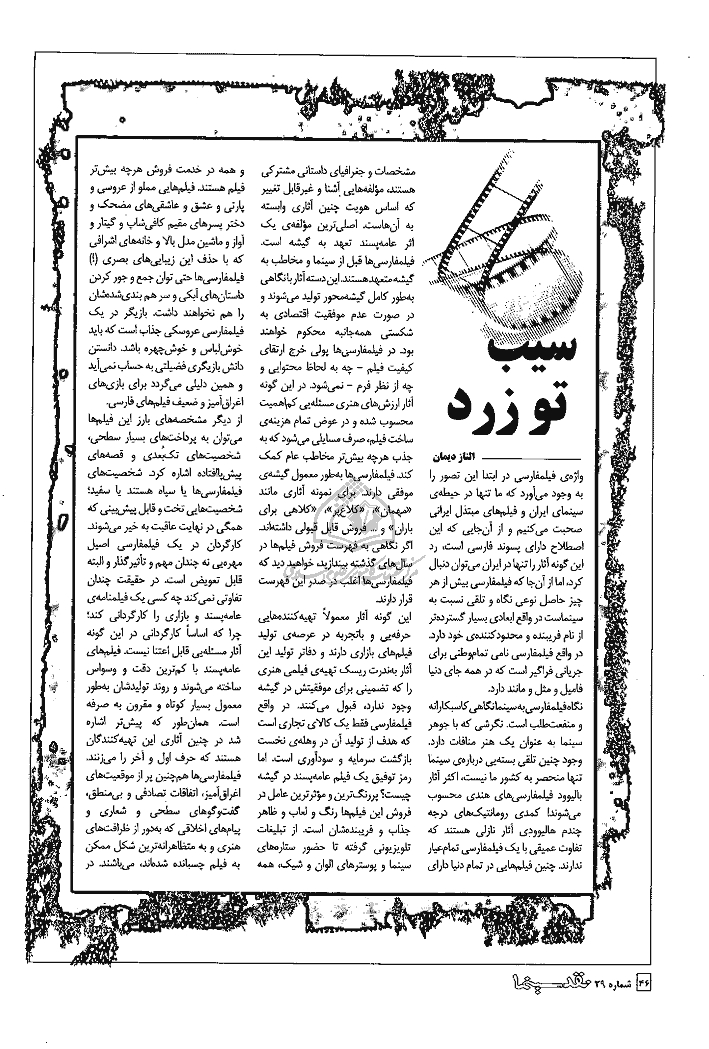 سیب
تو زرد
الناز دیمان
واژه‌ی فیلمفارسی در ابتدا این تصور را
به وجود می‌آورد که ما تنها در حیطه‌ی
سینمای ایران و فیلم‌های مبتذل ایرانی
صحبت می‌کنیم و از آن‌جایی که این
اصطلاح دارای پسوند فارسی است، رد
این گونه آثار را تنها در ایران می‌توان دنبال
کرد، اما از آن‌جا که فیلمفارسی بیش از هر
چیز حاصل نوعی نگاه و تلقی نسبت به
سینماست در واقع ابعادی بسیار گسترده‌تر
از نام فریبنده و محدودکننده‌ی خود دارد.
در واقع فیلمفارسی نامی تمام‌وطنی برای
جریانی فراگیر است که در همه جای دنیا
فامیل و مثل و مانند دارد.
نگاه فیلمفارسی به سینما نگاهی کاسبکارانه
و منفعت‌طلب است. نگرشی که با جوهر
سینما به عنوان یک هنر منافات دارد.
وجود چنین تلقی بسته‌یی درباره‌ی سینما
تنها منحصر به کشور ما نیست، اکثر آثار
بالیوود فیلمفارسی‌های هندی محسوب
می‌شوند! کمدی رومانتیک‌های درجه
چندم هالیوودی آثار نازلی هستند که
تفاوت عمیقی با یک فیلمفارسی تمام‌عیار
ندارند. چنین فیلم‌هایی در تمام دنیا دارای
مشخصات و جغرافیای داستانی مشترکی
هستند، مؤلفه‌هایی آشنا و غیرقابل تغییر
که اساس هویت چنین آثاری وابسته
به آن‌هاست. اصلی‌ترین مؤلفه‌ی یک
اثر عامه‌پسند تعهد به گیشه است.
فیلمفارسی‌ها قبل از سینما و مخاطب به
گیشه متعهد هستند. این دسته آثار با نگاهی
به‌طور کامل گیشه‌محور تولید می‌شوند و
در صورت عدم موفقیت اقتصادی به
شکستی همه‌جانبه محکوم خواهند
بود. در فیلمفارسی‌ها پولی خرج ارتقای
کیفیت فیلم – چه به لحاظ محتوایی و
چه از نظر فرم – نمی‌شود. در این گونه
آثار ارزش‌های هنری مسئله‌یی کم‌اهمیت
محسوب شده و در عوض تمام هزینه‌ی
ساخت فیلم، صرف مسایلی می‌شود که به
جذب هرچه بیش‌تر مخاطب عام کمک
کند. فیلمفارسی‌ها به‌طور معمول گیشه‌ی
موفقی دارند. برای نمونه آثاری مانند
«مهمان»، «کلاغ‌پر»، «کلاهی برای
باران» و ... فروش قابل قبولی داشته‌اند.
اگر نگاهی به فهرست فروش فیلم‌ها در
سال‌های گذشته بیندازید، خواهید دید که
فیلمفارسی‌ها اغلب در صدر این فهرست
قرار دارند.
این گونه آثار معمولاً تهیه‌کننده‌هایی
حرفه‌یی و باتجربه در عرصه‌ی تولید
فیلم‌های بازاری دارند و دفاتر تولید این
آثار به‌ندرت ریسک تهیه‌ی فیلمی هنری
را که تضمینی برای موفقیتش در گیشه
وجود ندارد، قبول می‌کنند. در واقع
فیلمفارسی فقط یک کالای تجاری است
که هدف از تولید آن در وهله‌ی نخست
بازگشت سرمایه و سودآوری است. اما
رمز توفیق یک فیلم عامه‌پسند در گیشه
چیست؟ پررنگ‌ترین و مؤثرترین عامل در
فروش این فیلم‌ها رنگ و لعاب و ظاهر
جذاب و فریبنده‌شان است. از تبلیغات
تلویزیونی گرفته تا حضور ستاره‌های
سینما و پوسترهای الوان و شیک، همه
و همه در خدمت فروش هرچه بیش‌تر
فیلم هستند. فیلم‌هایی مملو از عروسی و
پارتی و عشق و عاشقی‌های مضحک و
دختر پسرهای مقیم کافی‌شاپ و گیتار و
آواز و ماشین مدل بالا و خانه‌های اشرافی
که با حذف این زیبایی‌های بصری (!)
فیلمفارسی‌ها حتی توان جمع و جور کردن
داستان‌های آبکی و سر هم بندی‌شده‌شان
را هم نخواهند داشت. بازیگر در یک
فیلمفارسی عروسکی جذاب است که باید
خوش‌لباس و خوش‌چهره باشد. دانستن
دانش بازیگری فضیلتی به حساب نمی‌آید
و همین دلیلی می‌گردد برای بازی‌های
اغراق‌آمیز و ضعیف فیلم‌های فارسی.
از دیگر مشخصه‌های بارز این فیلم‌ها
می‌توان به پرداخت‌های بسیار سطحی،
شخصیت‌های تک‌بُعدی و قصه‌های
پیش‌پاافتاده اشاره کرد. شخصیت‌های
فیلمفارسی‌ها یا سیاه هستند یا سفید؛
شخصیت‌هایی تخت و قابل پیش‌بینی که
همگی در نهایت عاقبت به خیر می‌شوند.
کارگردان در یک فیلمفارسی اصیل
مهره‌یی نه چندان مهم و تأثیرگذار و البته
قابل تعویض است. در حقیقت چندان
تفاوتی نمی‌کند چه کسی یک فیلمنامه‌ی
عامه‌پسند و بازاری را کارگردانی کند؛
چرا که اساساً کارگردانی در این گونه
آثار مسئله‌یی قابل اعتنا نیست. فیلم‌های
عامه‌پسند با کم‌ترین دقت و وسواس
ساخته می‌شوند و روند تولیدشان به‌طور
معمول بسیار کوتاه و مقرون به صرفه
است. همان‌طور که پیش‌تر اشاره
شد در چنین آثاری این تهیه‌کنندگان
هستند که حرف اول و آخر را می‌زنند.
فیلمفارسی‌ها هم‌چنین پر از موقعیت‌های
اغراق‌آمیز، اتفاقات تصادفی و بی‌منطق،
گفت‌وگوهای سطحی و شعاری و
پیام‌های اخلاقی که به‌دور از ظرافت‌های
هنری و به متظاهرانه‌ترین شکل ممکن
به فیلم چسبانده شده‌اند، می‌باشند. در
۴۶ شماره ۳۹ نقد سینما